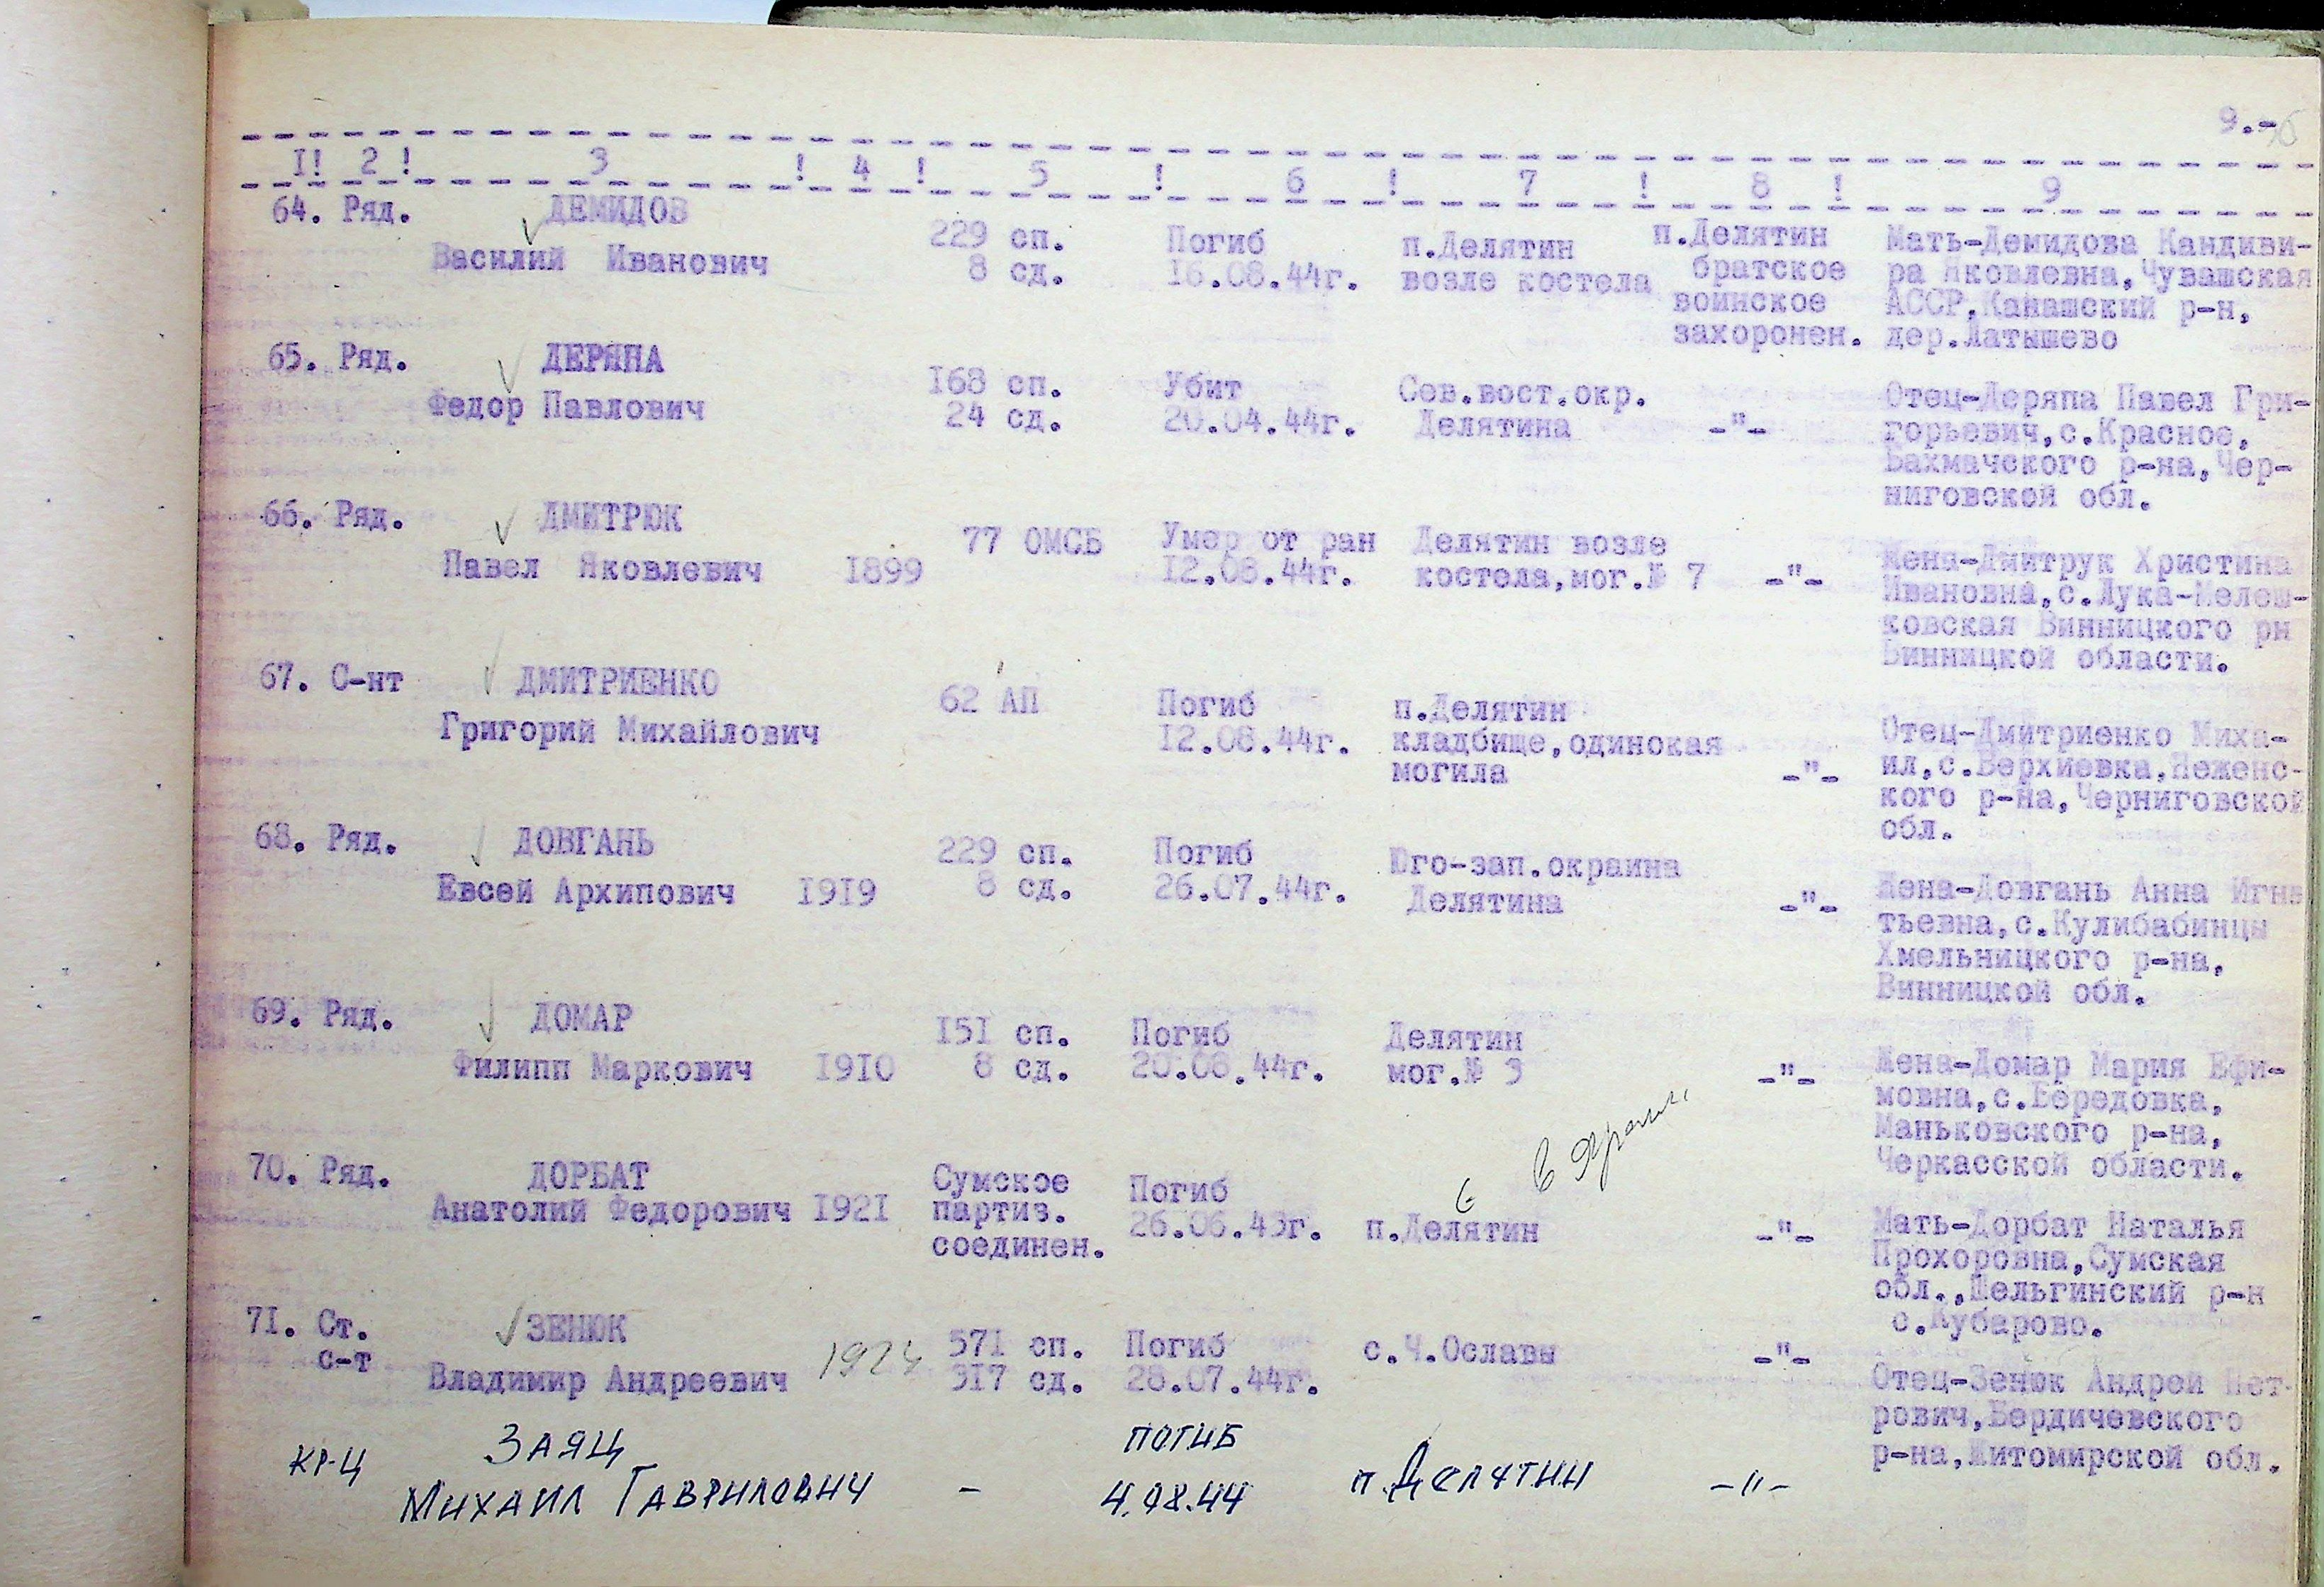 9.-
I! 2 ! 3 ! 4 ! 5 ! 6 ! 7 ! 8 ! 9
64. Ряд. ДЕМИДОВ
Василий Иванович
229 сп.
8 сд.
Погиб
16.08.44г.
п.Делятин
возле костела
п.Делятин
братское
воинское
захоронен.
Мать-Демидова Кандиви-
ра Яковлевна,Чувашская
АССР,Канашский р-н,
дер.Латышево
65. Ряд. ДЕРЯПА
Федор Павлович
168 сп.
24 сд.
Убит
20.04.44г.
Сев.вост.окр.
Делятина
-"-
Отец-Деряпа Павел Гри-
горьевич,с.Красное,
Бахмачского р-на,Чер-
ниговской обл.
66. Ряд. ДМИТРЮК
Павел Яковлевич 1899
77 ОМСБ
Умер от ран
12.08.44г.
Делятин возле
костела,мог.№ 7
-"-
Жена-Дмитрук Христина
Ивановна,с.Лука-Мелеш-
ковская Винницкого рн
Винницкой области.
67. С-нт ДМИТРИЕНКО
Григорий Михайлович
62 АП
Погиб
12.08.44г.
п.Делятин
кладбище,одинокая
могила
-"-
Отец-Дмитриенко Миха-
ил,с.Верхиевка,Неженс-
кого р-на,Черниговской
обл.
68. Ряд. ДОВГАНЬ
Евсей Архипович 1919
229 сп.
8 сд.
Погиб
26.07.44г.
Юго-зап.окраина
Делятина
-"-
Жена-Довгань Анна Игна
тьевна,с.Кулибабинцы
Хмельницкого р-на,
Винницкой обл.
69. Ряд. ДОМАР
Филипп Маркович 1910
151 сп.
8 сд.
Погиб
20.08.44г.
Делятин
мог.№ 3
-"-
Жена-Домар Мария Ефи-
мовна,с.Бередовка,
Маньковского р-на,
Черкасской области.
70. Ряд. ДОРБАТ
Анатолий Федорович 1921
Сумское
партиз.
соединен.
Погиб
26.06.43г.
п.Делятин
-"-
Мать-Дорбат Наталья
Прохоровна,Сумская
обл.,Шельгинский р-н
с.Кубарово.
71. Ст.
с-т
ЗЕНЮК
Владимир Андреевич 1924
571 сп.
317 сд.
Погиб
28.07.44г.
с.Ч.Ославы
-"-
Отец-Зенюк Андрей Пет-
рович,Бердичевского
р-на,Житомирской обл.
КР-Ц ЗАЯЦ
МИХАИЛ ГАВРИЛОВИЧ
-
ПОГИБ
4.08.44
п.Делятин
-"-